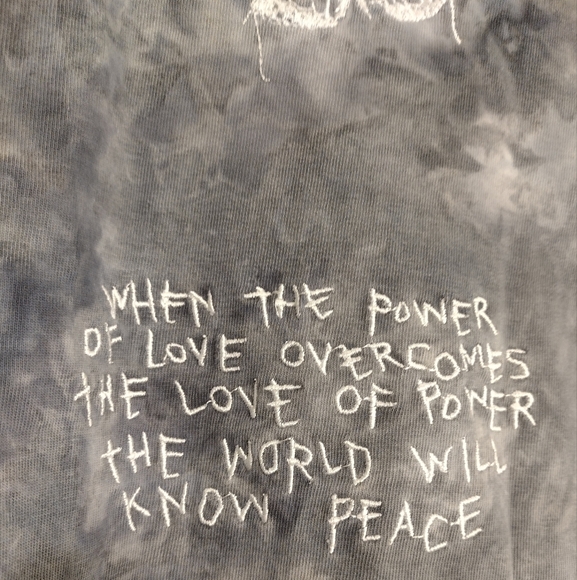 WHEN THE POWER
OF LOVE OVERCOMES
THE LOVE OF POWER
THE WORLD WILL
KNOW PEACE